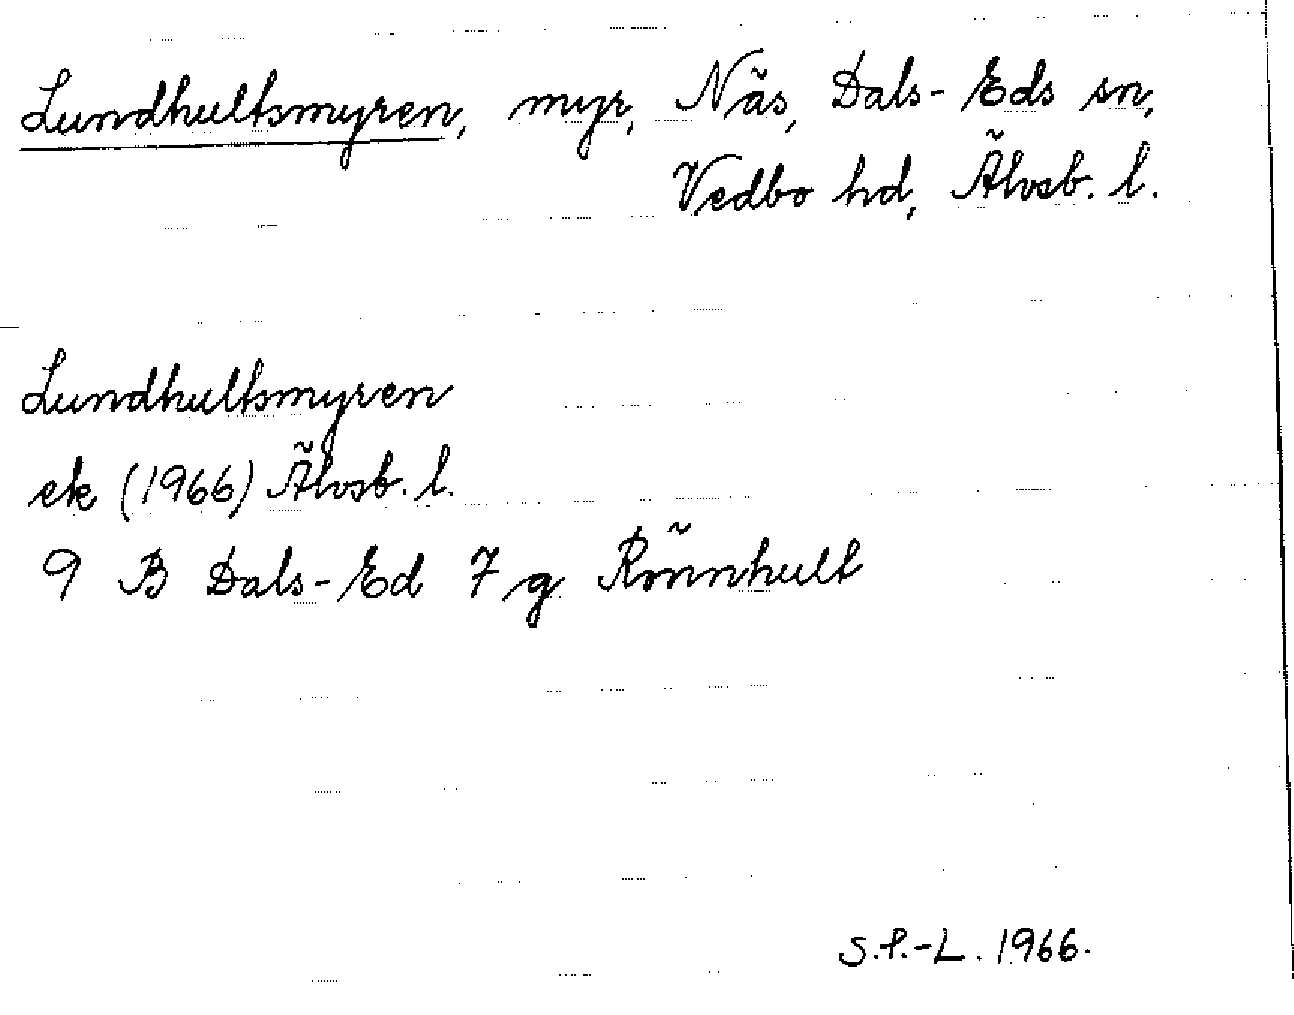 Lundhultsmyren, myr, Näs, Dals-Eds sn,
Vedbo hd, Älvsb. l.
Lundhultsmyren
ek (1966) Älvsb. l.
9 B Dals-Ed 7 g Rönnhult
S.P.-L. 1966.